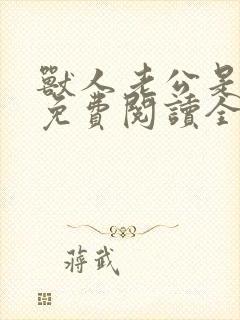 獸人老公是
免費閱讀全
蔣武